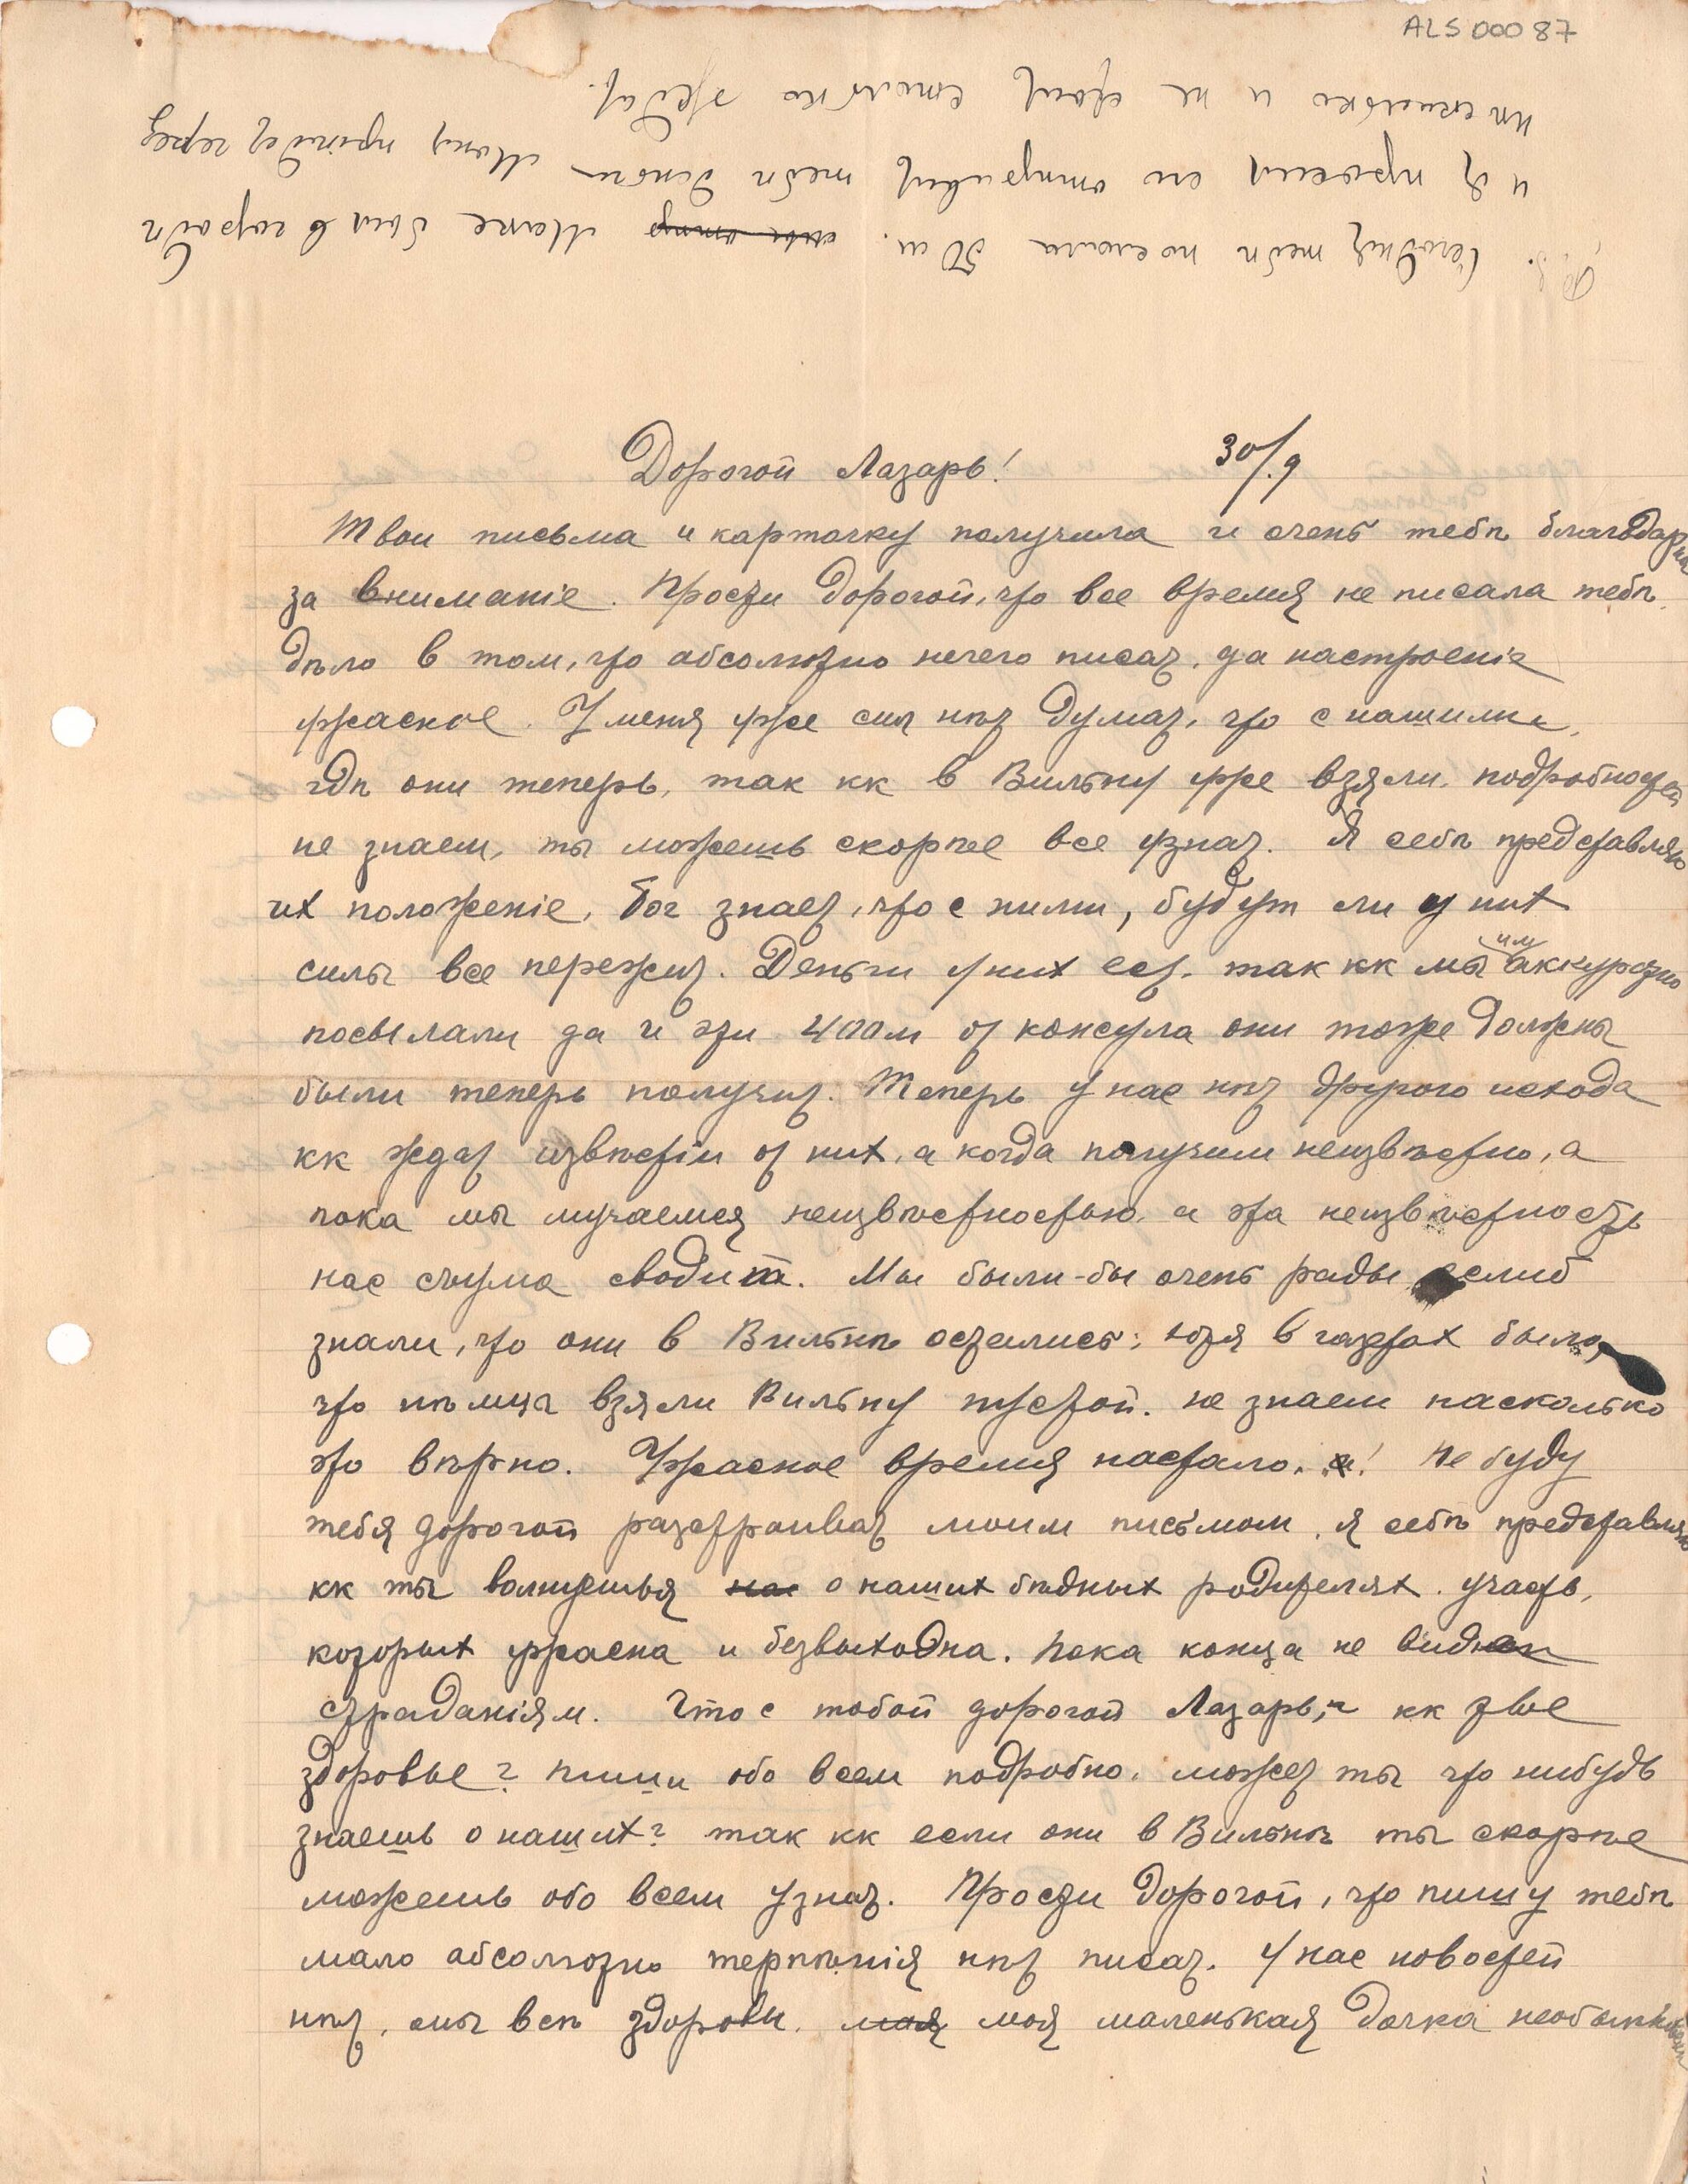 ALS 00087
P.S. Сегодня тебѣ послала 50 м. ~~мы отпр~~ Маке был в городѣ
и я просил его отправить тебѣ деньги Мому придет через
нѣсколько и не стоит столько ждать.
Дорогой Лазарь! 30/.9
Твои письма и карточку получила и очень тебѣ благодарна
за вниманіе. Прости дорогой, что все время не писала тебѣ,
дѣло в том, что абсолютно нечего писать, да настроеніе
ужасное. У меня уже сил нѣт думать, что с нашими,
гдѣ они теперь, так кк в Вильну уже взяли, подробностей
не знаем, ты можешь скорѣе все узнать. Я себѣ представляю
их положеніе, бог знает, что с ними, будут ли у них
силы все пережить. Деньги у них есть, так кк мы им аккуратно
посылали да и эти 400м от консула они тоже должны
были теперь получить. Теперь у нас нѣт другого исхода
кк ждать извѣстій от них, а когда получим неизвѣстно, а
пока мы мучаемся неизвѣстностью, и эта неизвѣстность
нас съума сводит. Мы были-бы очень рады еслиб
знали, что они в Вильнѣ остались; хотя в газетах было,
что нѣмцы взяли Вильну пустой. не знаем насколько
это вѣрно. Ужасное время настало.! Не буду
тебя дорогой разстраивать моим письмом, я себѣ представляю
кк ты волнуешься ~~нас~~ о наших бѣдных родителях. участь,
которых ужасна и безвыходна. Пока конца не видно
страданіям. Что с тобой дорогой Лазарь, и кк твое
здоровье? пиши обо всем подробно, может ты что нибудь
знаешь о наших? так кк если они в Вильнѣ ты скорѣе
можешь обо всем узнать. Прости дорогой, что пишу тебѣ
мало абсолютно терпѣнія нѣт писать. У нас новостей
нѣт, мы всѣ здоровы. ~~моя~~ моя маленькая дочка необыкновенн